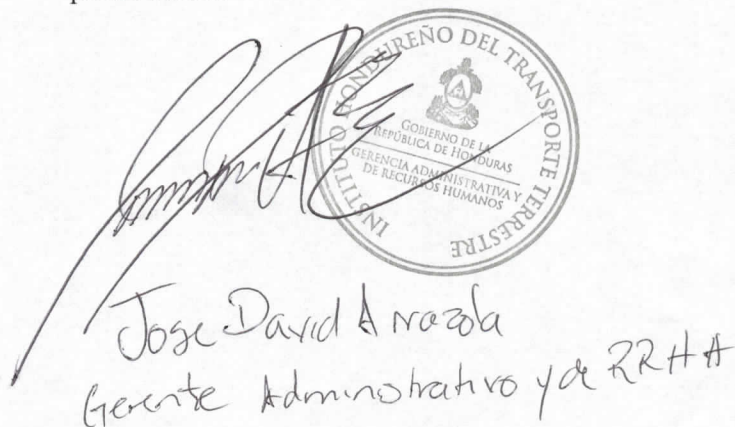 INSTITUTO HONDUREÑO DEL TRANSPORTE TERRESTRE
GOBIERNO DE LA
REPÚBLICA DE HONDURAS
GERENCIA ADMINISTRATIVA Y
DE RECURSOS HUMANOS
Jose David Arrazola
Gerente Administrativo y de RRHH